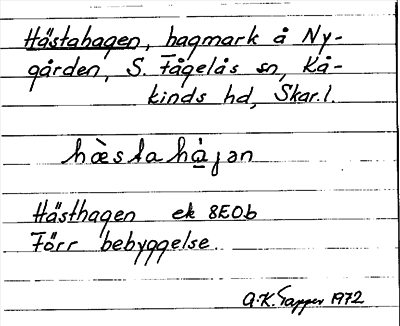 Hästahagen, hagmark å Ny-
gården, S. Fågelås sn, Kå-
kinds hd, Skar. l.
hæ̀stahà̱jən
Hästhagen ek 8E0b
Förr bebyggelse
A-K. Tapper 1972